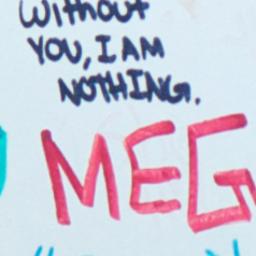 Without
YOU, I AM
NOTHING.
MEG